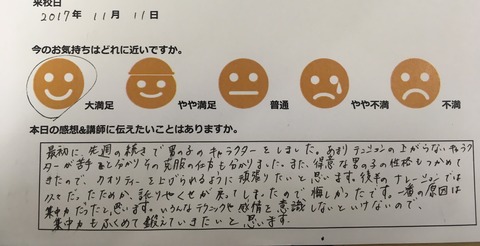 来校日
2017年 11月 11日
今のお気持ちはどれに近いですか。
大満足 やや満足 普通 やや不満 不満
本日の感想&講師に伝えたいことはありますか。
最初に、先週の続きで男の子のキャラクターをしました。あまりテンションの上がらないキャラク
ターが苦手と分かりその克服の仕方も分かりました。また、得意な男の子の性格もつかめて
きたので、クオリティーを上げられるように頑張りたいと思います。後半のナレーションでは
ためか、訛りやくせが戻ってしまったので悔しかったです。一番の原因は
集中力だったと思います。いろんなテクニックや感情を意識しないといけないので、
集中力もふくめて鍛えていきたいと思います。